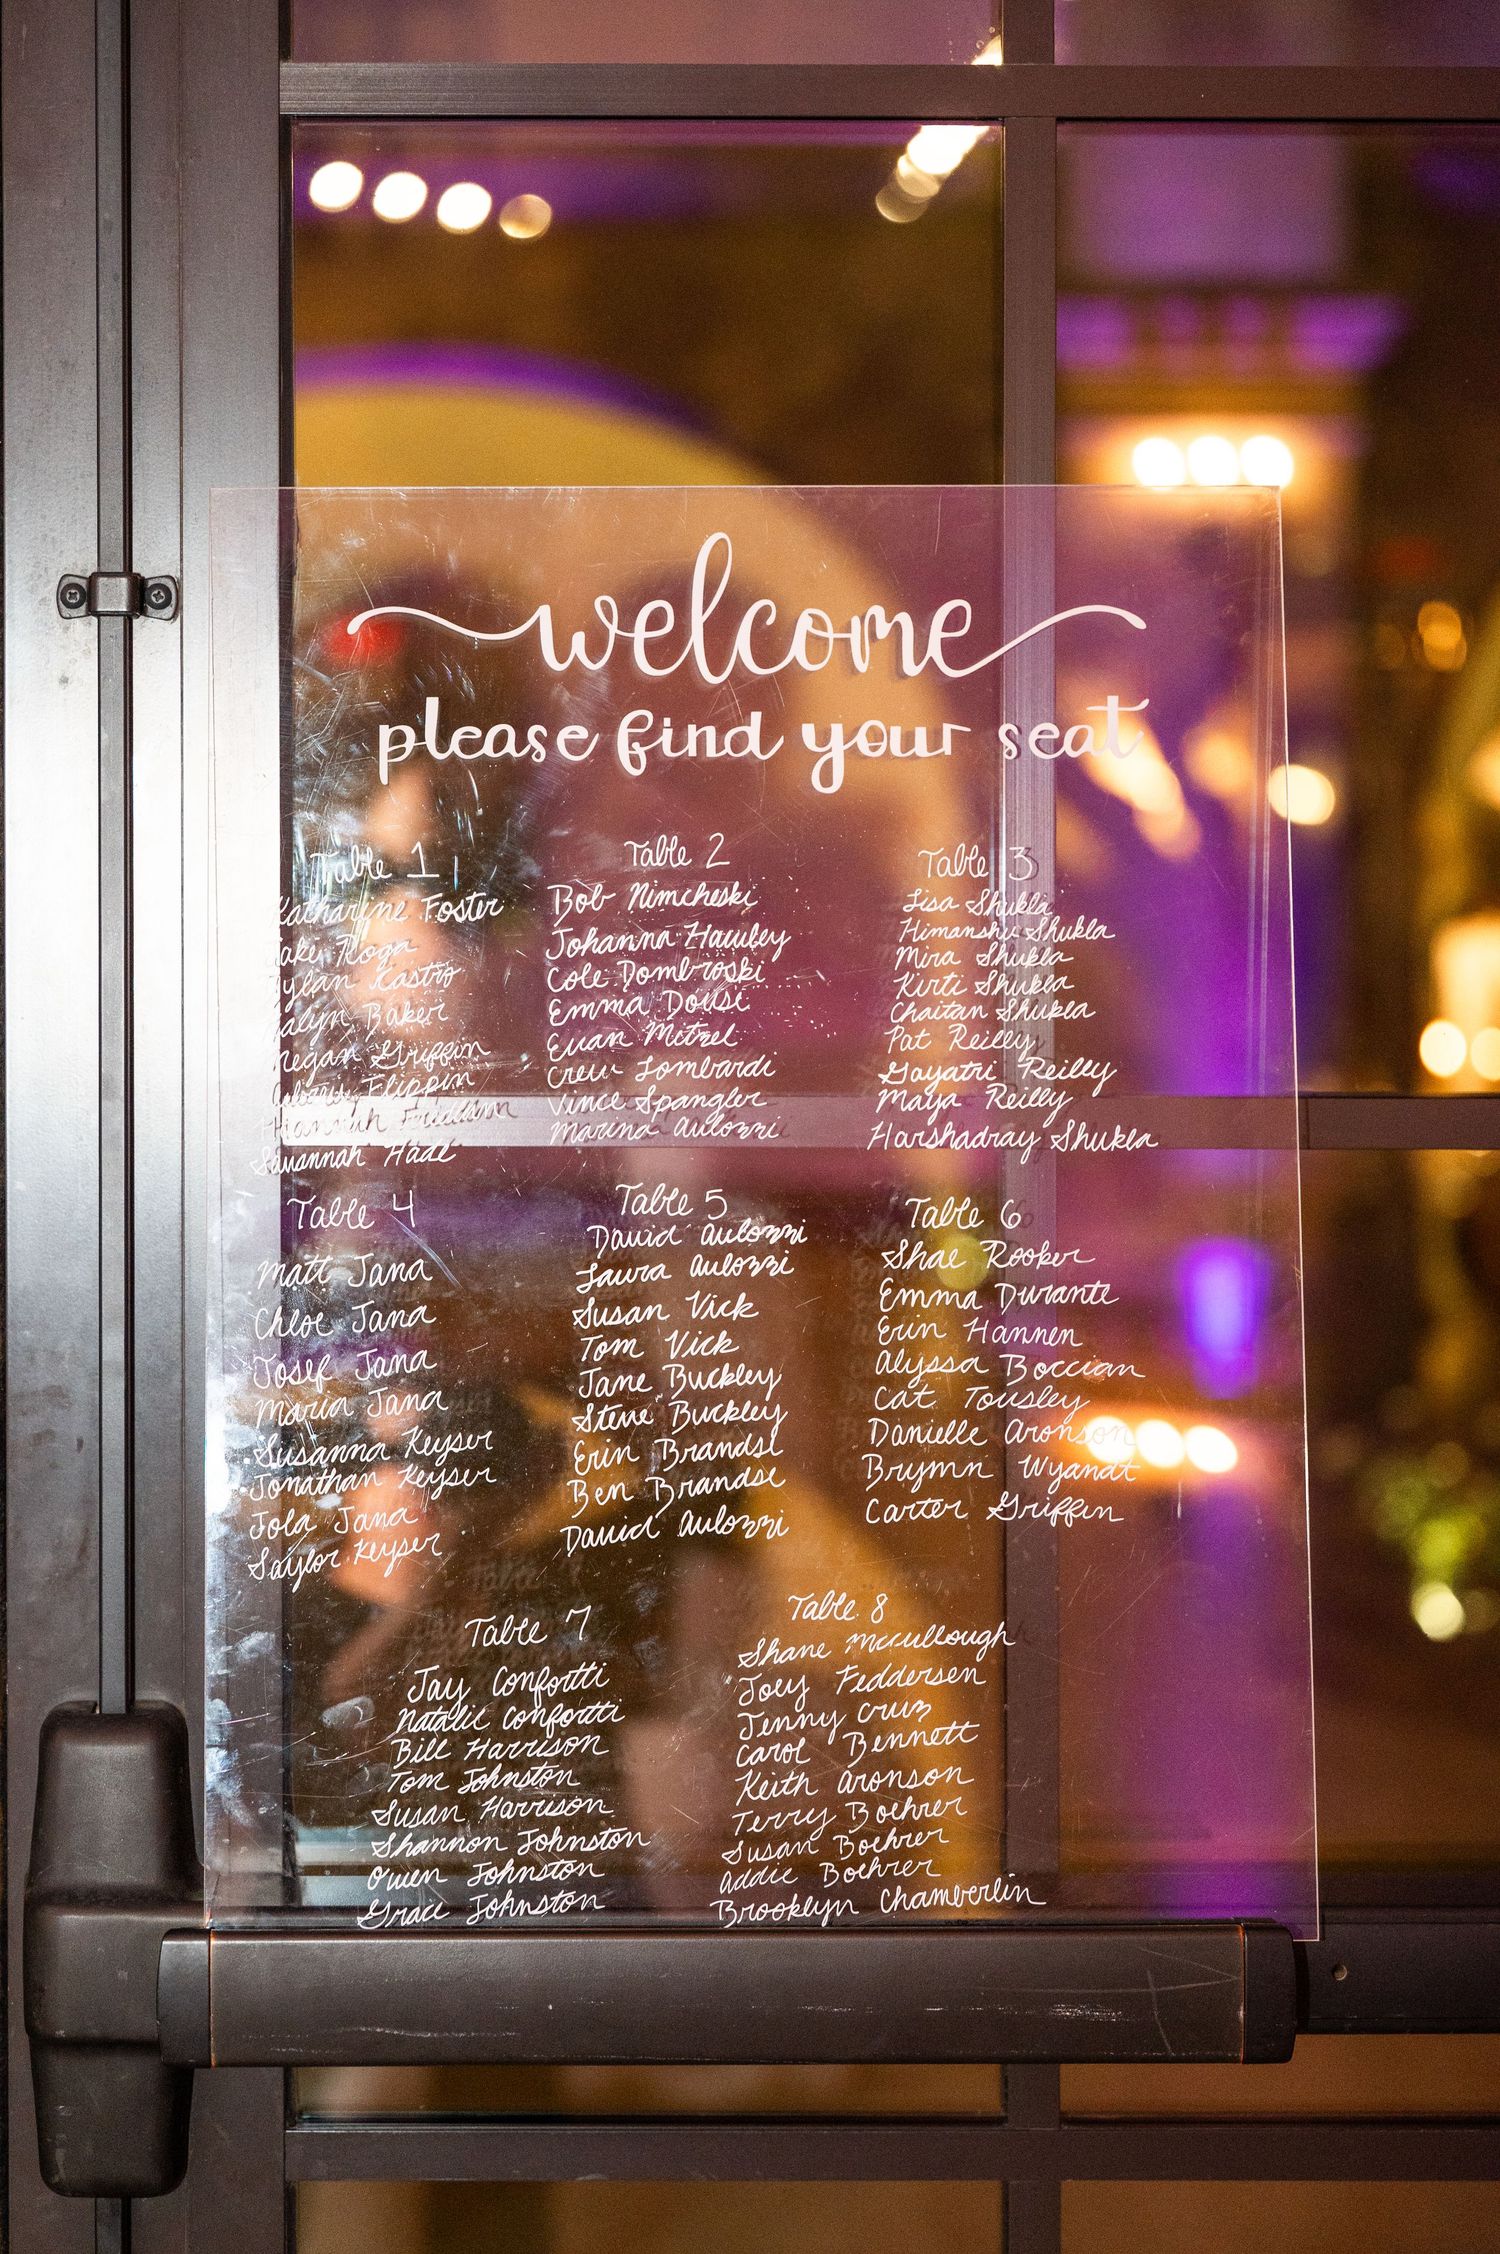 welcome
please find your seat
Table 1
Katharine Foster
Jake Roga
Dylan Castro
Baker
Megan Griffin
Flippin
Hannah
Savannah Hade
Table 2
Bob Nimcheski
Johanna Hawley
Cole Dombroski
Emma Dousi
Evan Mitzel
Crew Lombardi
Vince Spangler
Marina Aulozzi
Table 3
Lisa Shukla
Himanshu Shukla
Mira Shukla
Kirti Shukla
Chaitan Shukla
Pat Reilly
Gayatri Reilly
Maya Reilly
Harshadray Shukla
Table 4
Matt Jana
Chloe Jana
Josef Jana
Maria Jana
Susanna Keyser
Jonathan Keyser
Lola Jana
Saylor Keyser
Table 5
David Aulozzi
Laura Aulozzi
Susan Vick
Tom Vick
Jane Buckley
Steve Buckley
Erin Brandse
Ben Brandse
David Aulozzi
Table 6
Shae Rooker
Emma Durante
Erin Hannen
Alyssa Boccian
Cat Tousley
Danielle Aronson
Brymn Wyandt
Carter Griffin
Table 7
Jay Confortti
Natalie Confortti
Bill Harrison
Tom Johnston
Susan Harrison
Shannon Johnston
Owen Johnston
Grace Johnston
Table 8
Shane McCullough
Joey Feddersen
Jenny Cruz
Carol Bennett
Keith Aronson
Terry Boehrer
Susan Boehrer
Addie Boehrer
Brooklyn Chamberlin